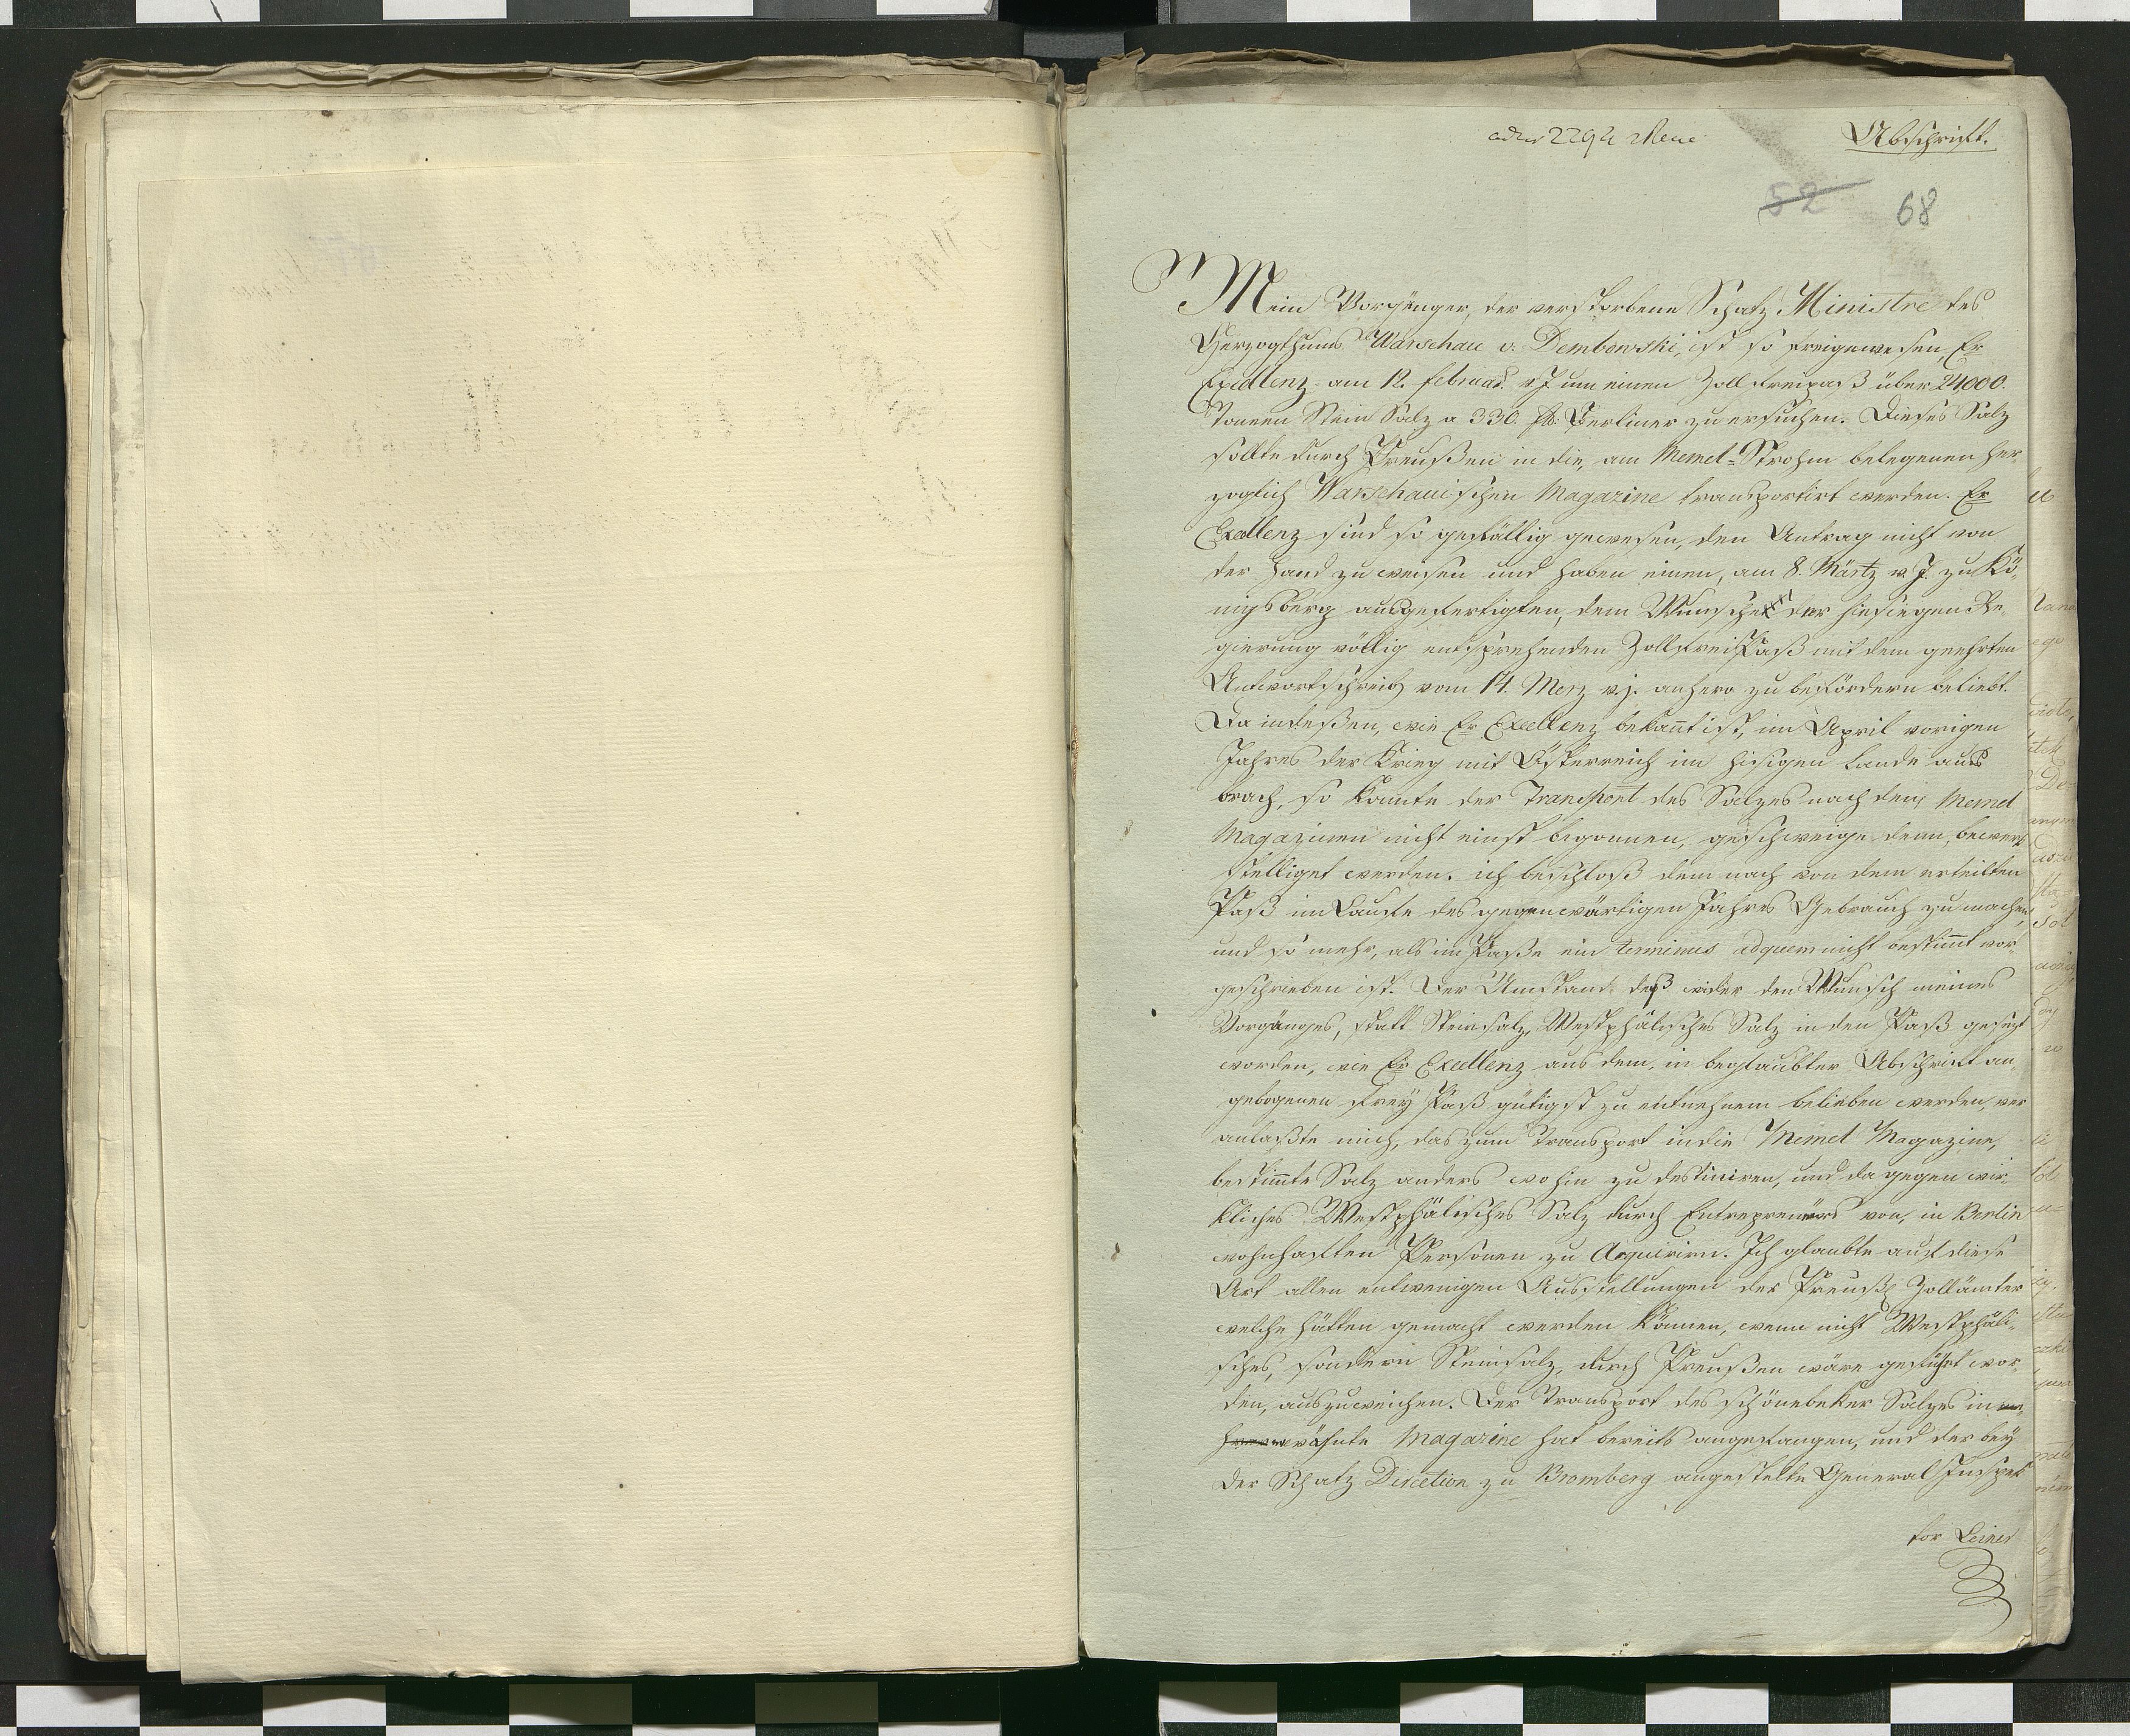 ad N 2292
Abschrift.
52 68
Mein Vorgänger, der verstorbene Schatz Ministre des
Herzogthums Warschau v. Dembowski, ist so freigewesen, Er
Excellenz am 12. februar. v J um einen Zoll freipaß über 24000.
Tonnen Stein Salz a 330. lb. Berliner zu ersuchen. Dieses Salz
sollte durch Preußen in die, am Memel-Strohm belegenen her-
zoglich Warschauischen Magazine transportirt werden. Er
Excellenz sind so gefällig gewesen, den Antrag nicht von
der Hand zu weisen und haben einen, am 8. Märtz v. J. zu Kö-
nigsberg ausgefertigten, dem Wunsche der hiesiegen Re-
gierung völlig entsprehenden Zollfrei Paß mit dem geehrten
Antwortschreib vom 14. Merz v. j. anhero zu befördern beliebt.
Da indeßen, wie Er Excellenz bekant ist, im April vorigen
Jahres der Krieg mit Österreich im hiesigen Lande aus
brach, so konnte der Transport des Salzes nach den Memel
Magazinen nicht einst begonnen, geschweige denn, bewerk
stelliget werden. ich beschloß dem nach von dem erteilten
Paß im Laufe des gegenwärtigen Jahres Gebrauch zu machen,
und so mehr, als im Paße ein terminus adquem nicht bestimt vor-
geschrieben ist. Der Umstand, daß wider den Wunsch meines
Vorgänges, statt Steinsalz, Westphälisches Salz in den Paß gesezt
worden, wie Er Excellenz aus dem, in beglaubter Abschrift an-
gebogenen Frey Paß gütigst zu entnehmen belieben werden, ver
anlaßte mich, das zum Transport in die Memel Magazine,
bestimte Salz anders wohin zu destiniren, und da gegen wir-
kliches Westphälisches Salz durch Entrepreneurs von, in Berlin
wohnhaften Personen zu Acquirirn. Ich glaubte auf diese
Art allen entwenigen Ausstellungen der Preuß Zollämter
welche hätten gemacht werden können, wenn nicht Westphäli-
sches, sondern Steinsalz, durch Preußen wäre geführt wor-
den, auszuweichen. Der Transport des schönebeker Salzes in
erwähnte Magazine hat bereits angefangen, und der bey
der Schatz Direction zu Bromberg angestelte General Inspek
tor Leiner